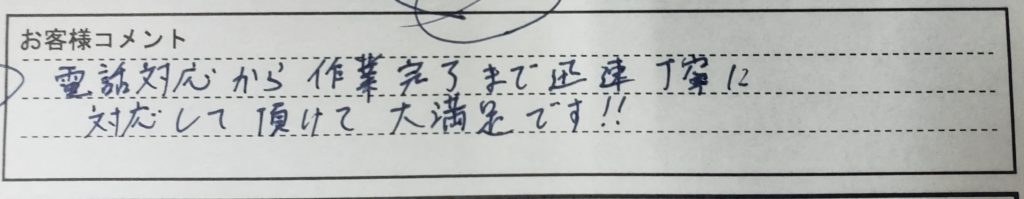 お客様コメント
電話対応から作業完了まで迅速丁寧に
対応して頂けて大満足です!!